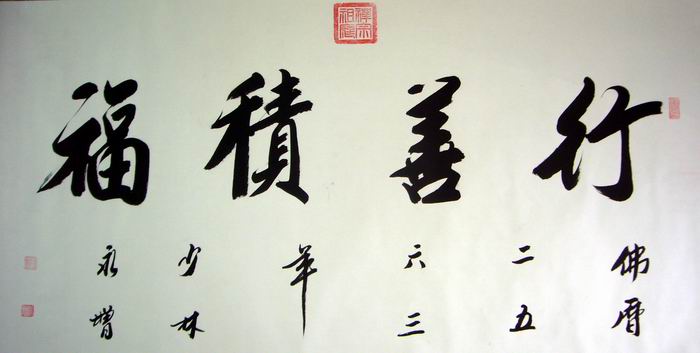 禪宗祖庭
行善積福
佛曆
二五
六三
年
少林
永增